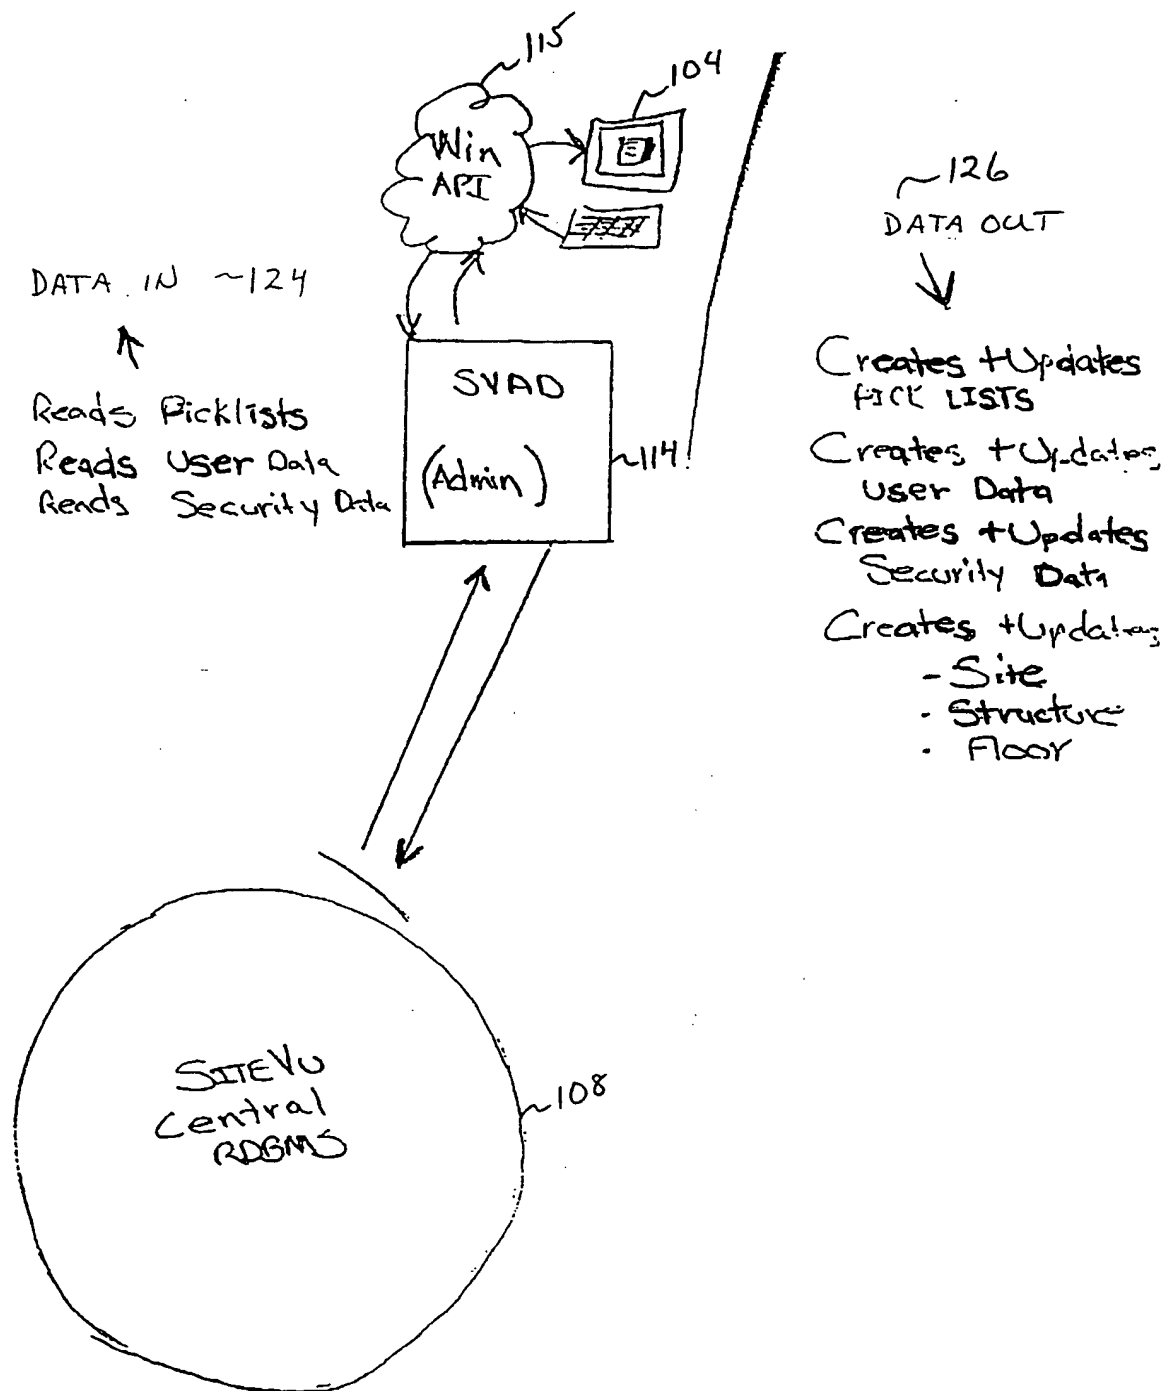 115
104
Win
API
126
DATA OUT
DATA IN ~124
Reads Picklists
Reads User Data
Reads Security Data
SVAD
(Admin)
114
Creates + Updates
PICK LISTS
Creates + Updates
User Data
Creates + Updates
Security Data
Creates + Updates
- Site
· Structure
· Floor
SITEVU
Central
RDBMS
108